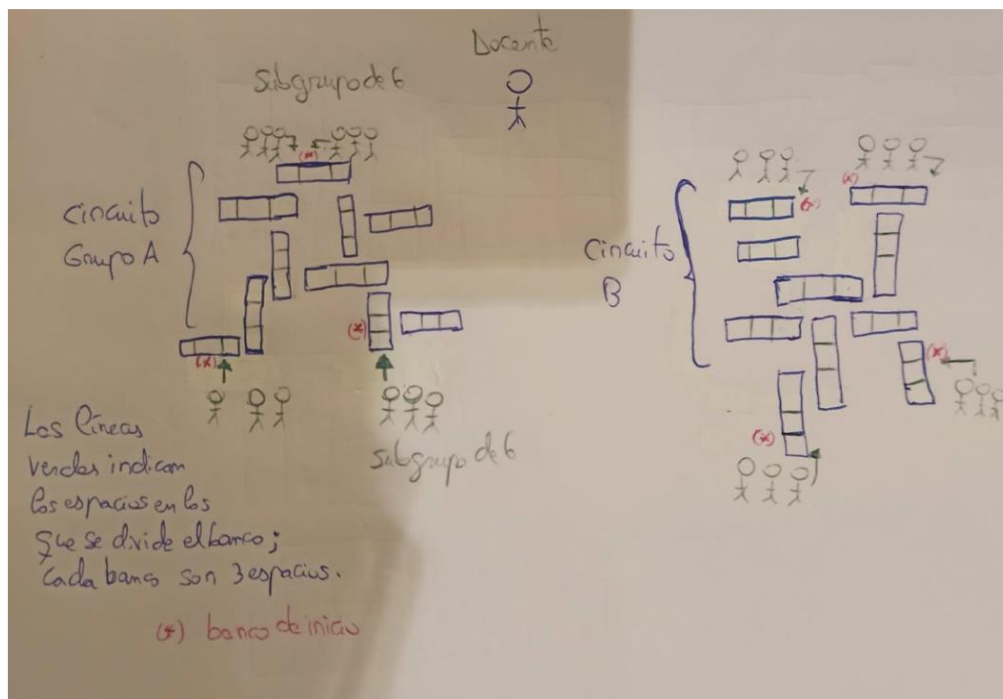 Docente
Subgrupo de 6
(*)
Circuito
Grupo A
(*)
(*)
Subgrupo de 6
Circuito
B
(*)
(*)
(*)
(*)
Las líneas
verdes indican
los espacios en los
que se divide el banco;
Cada banco son 3 espacios.
(*) banco de inicio